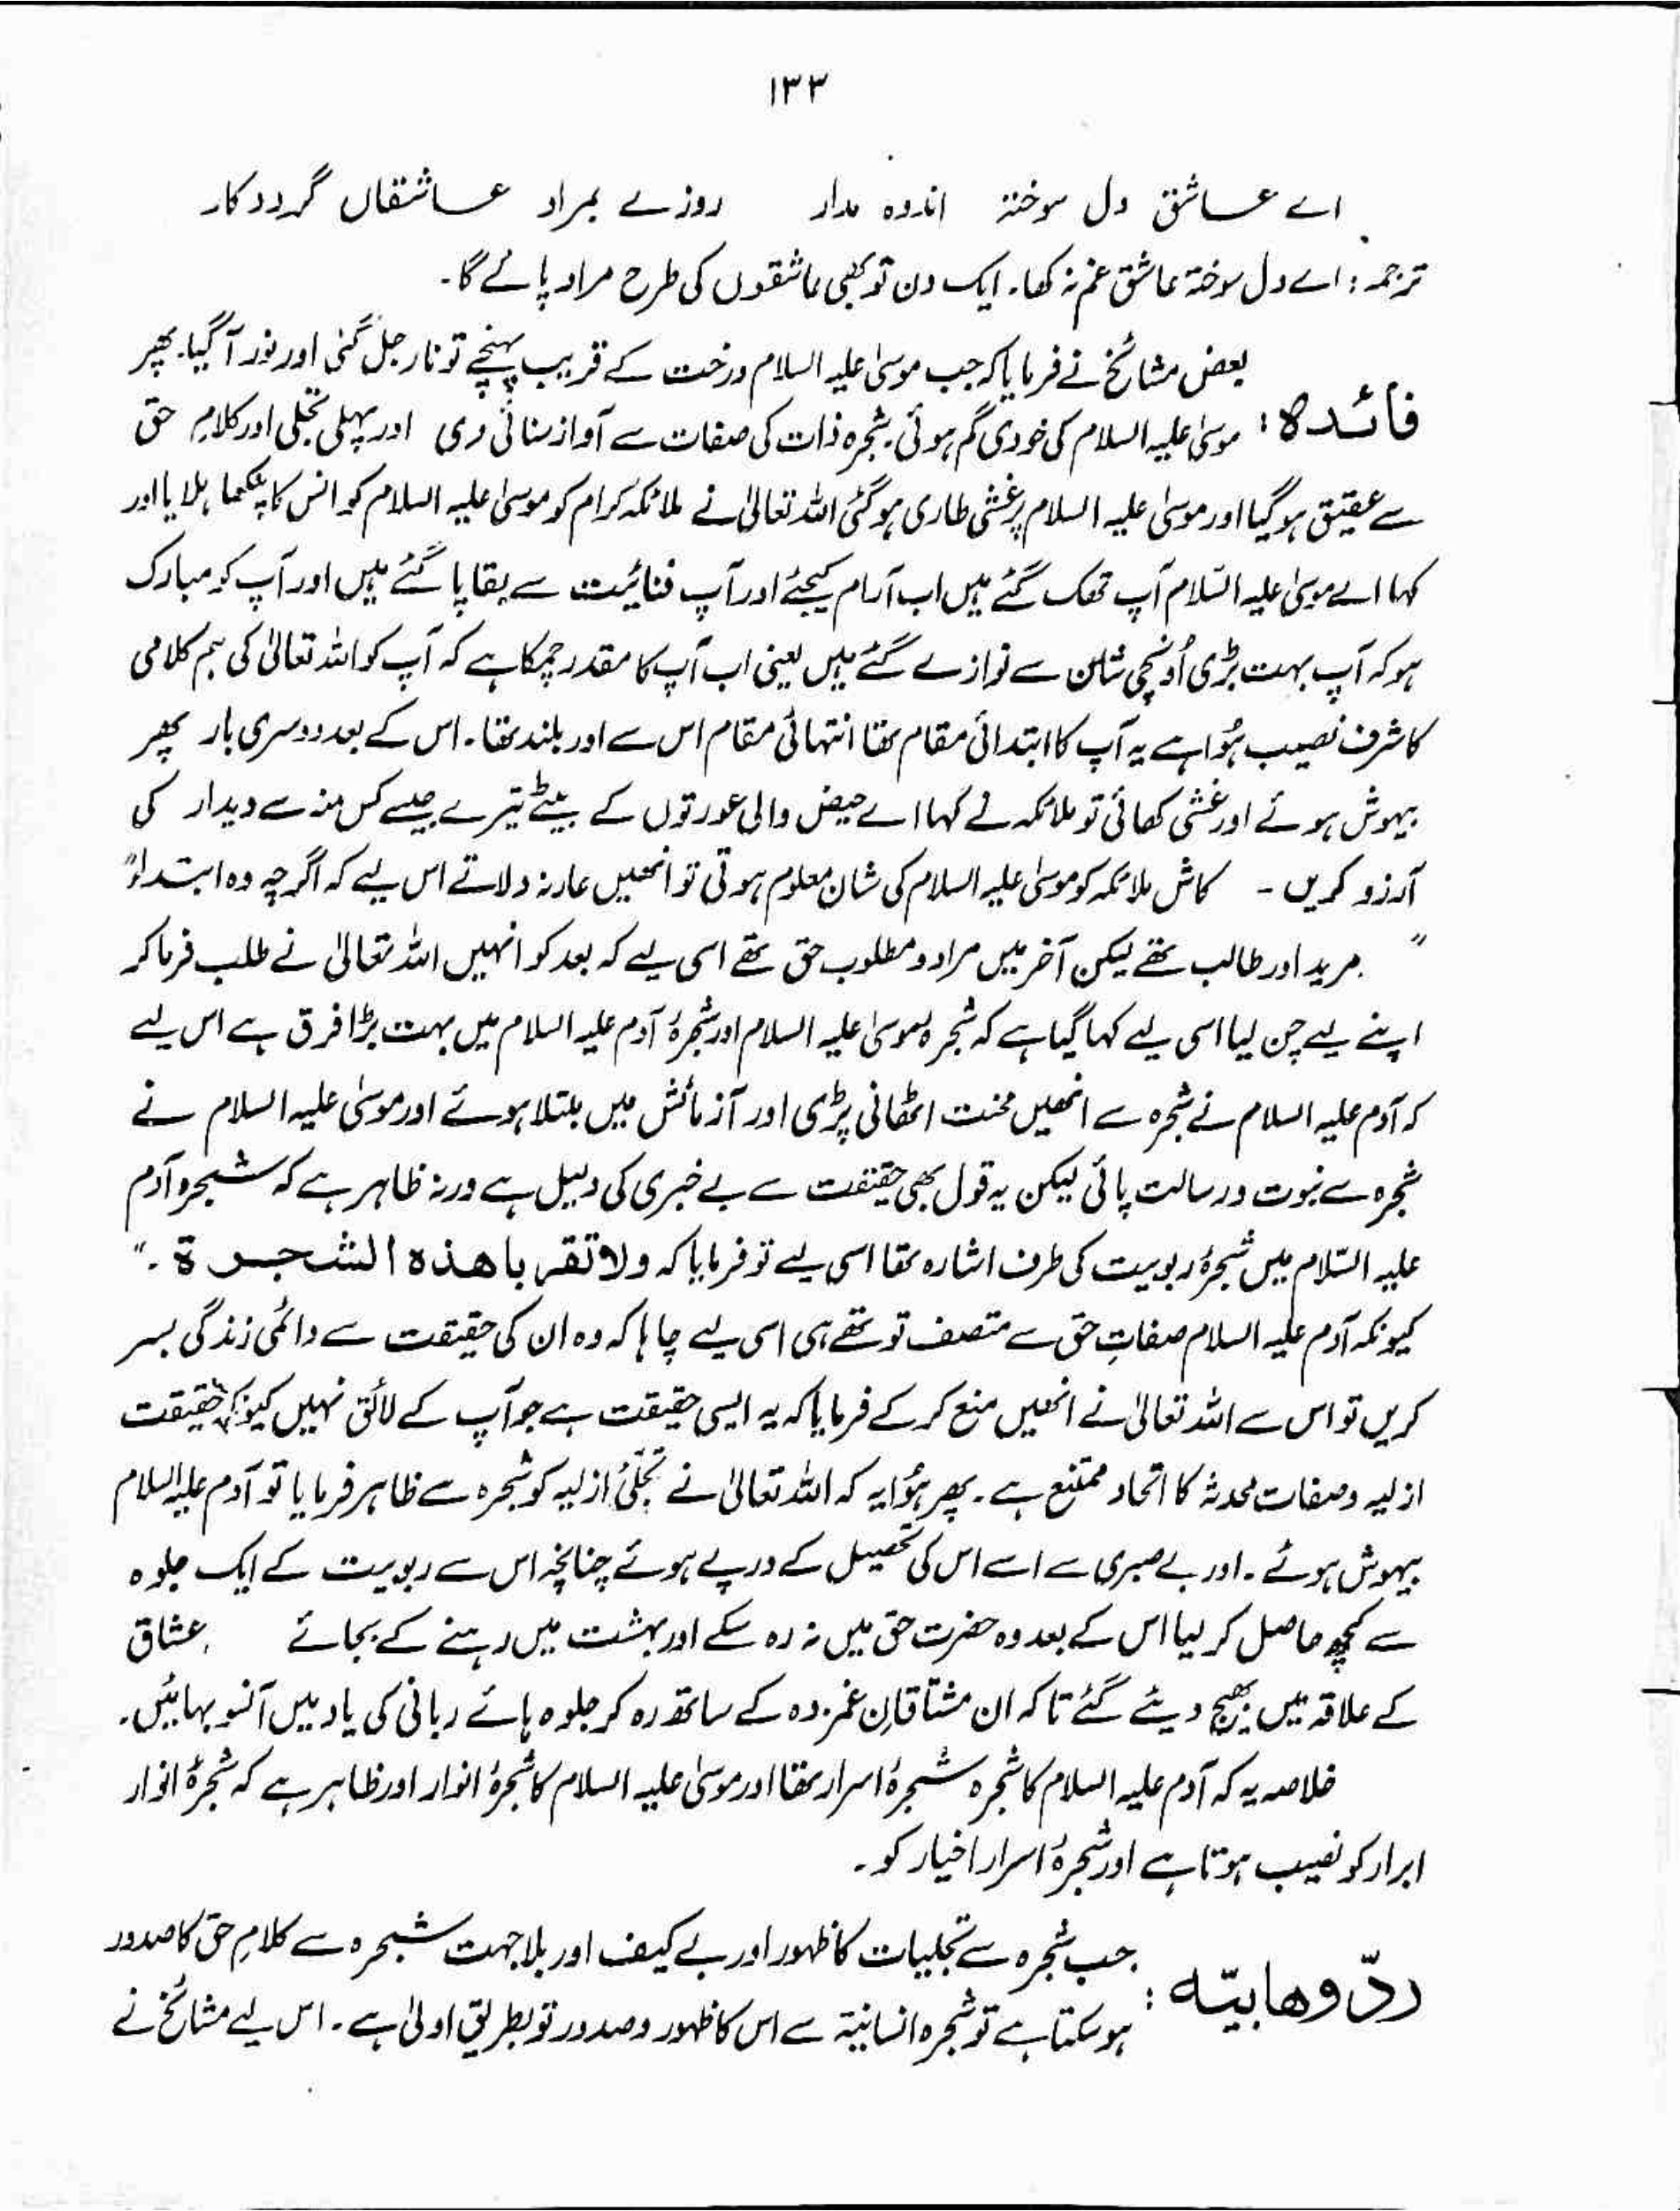 ۱۳۳
اے عاشق دل سوختہ اندوہ مدار روزے بمراد عاشقاں گردد کار
ترجمہ: اے دل سوختہ عاشق غم نہ کھا۔ ایک دن تو بھی عاشقوں کی طرح مراد پائے گا۔
بعض مشائخ نے فرمایا کہ جب موسیٰ علیہ السلام درخت کے قریب پہنچے تو نار جل گئی اور نور آ گیا۔ پھر
فائدہ: موسیٰ علیہ السلام کی خودی گم ہوئی۔ شجرہ ذات کی صفات سے آواز سنائی دی اور پہلی تجلی اور کلامِ حق
سے عقیق ہو گیا اور موسیٰ علیہ السلام پر غشی طاری ہو گئی اللہ تعالیٰ نے ملائکہ کرام کو موسیٰ علیہ السلام کو انس کا پنکھا ہلایا اور
کہا اے موسیٰ علیہ السّلام آپ تھک گئے ہیں اب آرام کیجئے اور آپ فنائیت سے بقا پا گئے ہیں اور آپ کو مبارک
ہو کہ آپ بہت بڑی اُونچی شان سے نوازے گئے ہیں یعنی اب آپ کا مقدر چمکا ہے کہ آپ کو اللہ تعالیٰ کی ہم کلامی
کا شرف نصیب ہُوا ہے یہ آپ کا ابتدائی مقام تھا انتہائی مقام اس سے اور بلند تھا۔ اس کے بعد دوسری بار پھر
بیہوش ہوئے اور غشی کھائی تو ملائکہ نے کہا اے حیض والی عورتوں کے بیٹے تیرے جیسے کس منہ سے دیدار کی
آرزو کریں ۔ کاش ملائکہ کو موسیٰ علیہ السلام کی شان معلوم ہوتی تو انھیں عار نہ دلاتے اس لیے کہ اگرچہ وہ ابتداءً
مرید اور طالب تھے لیکن آخر میں مراد و مطلوب حق تھے اسی لیے کہ بعد کو انہیں اللہ تعالیٰ نے طلب فرما کر
اپنے لیے چن لیا اسی لیے کہا گیا ہے کہ شجرہ موسیٰ علیہ السلام اور شجرۂ آدم علیہ السلام میں بہت بڑا فرق ہے اس لیے
کہ آدم علیہ السلام نے شجرہ سے انھیں محنت اٹھانی پڑی اور آزمائش میں مبتلا ہوئے اور موسیٰ علیہ السلام نے
شجرہ سے نبوت و رسالت پائی لیکن یہ قول بھی حقیقت سے بے خبری کی دلیل ہے ورنہ ظاہر ہے کہ شجرہ آدم
علیہ السّلام میں شجرۂ ربوبیت کی طرف اشارہ تھا اسی لیے تو فرمایا کہ ولا تقربا هذه الشجرة ۔"
کیونکہ آدم علیہ السلام صفاتِ حق سے متصف تو تھے ہی اسی لیے چاہا کہ وہ ان کی حقیقت سے دائمی زندگی بسر
کریں تو اس سے اللہ تعالیٰ نے انھیں منع کر کے فرمایا کہ یہ ایسی حقیقت ہے جو آپ کے لائق نہیں کیونکہ حقیقت
ازلیہ و صفات محدثہ کا اتحاد ممتنع ہے۔ پھر ہُوا یہ کہ اللہ تعالیٰ نے تجلّیٔ ازلیہ کو شجرہ سے ظاہر فرمایا تو آدم علیہ السلام
بیہوش ہوئے۔ اور بے صبری سے اسے اس کی تحصیل کے درپے ہوئے چنانچہ اس سے ربوبیت کے ایک جلوہ
سے کچھ حاصل کر لیا اس کے بعد وہ حضرت حق میں نہ رہ سکے اور بہشت میں رہنے کے بجائے عشاق
کے علاقہ میں بھیج دیئے گئے تاکہ ان مشتاقانِ غمزدہ کے ساتھ رہ کر جلوہ ہائے ربانی کی یاد میں آنسو بہائیں۔
خلاصہ یہ کہ آدم علیہ السلام کا شجرہ شجرۂ اسرار تھا اور موسیٰ علیہ السلام کا شجرۂ انوار اور ظاہر ہے کہ شجرۂ انوار
ابرار کو نصیب ہوتا ہے اور شجرۂ اسرار اخیار کو۔
جب شجرہ سے تجلیات کا ظہور اور بے کیف اور بلا جہت شجرہ سے کلامِ حق کا صدور
ردّ وھابیّہ: ہو سکتا ہے تو شجرہ انسانیۃ سے اس کا ظہور و صدور تو بطریق اولیٰ ہے۔ اس لیے مشائخ نے